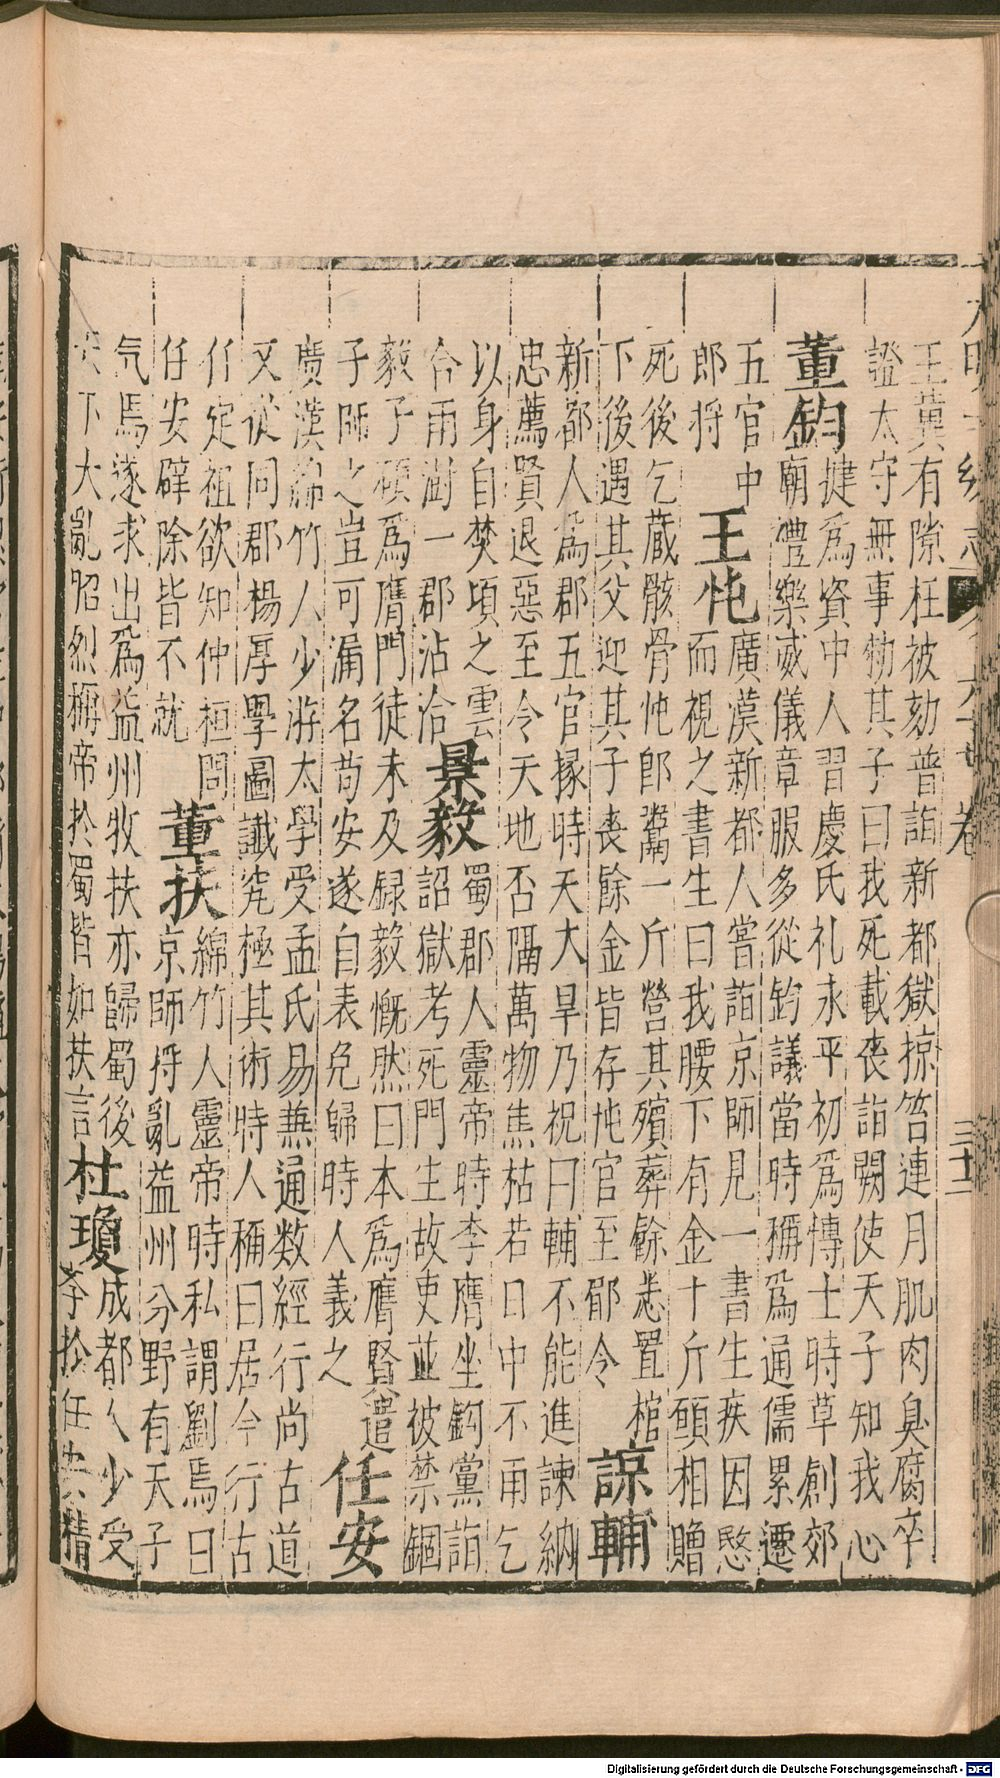 大明一統志 卷六十七 三十二
王莽有隙枉被劾普詣新都獄掠笞連月肌肉臭腐卒
證太守無事勑其子曰我死載喪詣闕使天子知我心
董鈞
犍爲資中人習慶氏礼永平初爲博士時草創郊
廟禮樂威儀章服多從鈞議當時稱爲通儒累遷
五官中
郎將
王忳
廣漢新都人嘗詣京師見一書生疾因愍
而視之書生曰我腰下有金十斤頭相贈
死後乞葬骸骨忳即鬻一斤營其殯葬餘悉置棺
下後遇其父迎其子喪餘金皆存忳官至郿令
諒輔
新都人爲郡五官掾時天大旱乃祝曰輔不能進諫納
忠薦賢退惡至令天地否隔萬物焦枯若日中不雨乞
以身自焚頃之雲
合雨澍一郡沾洽
景毅
蜀郡人靈帝時李膺坐鈎黨詣
詔獄考死門生故吏並被禁錮
毅子碩爲膺門徒未及録毅慨然曰本爲膺賢遣
子師之豈可漏名苟安遂自表免歸時人義之
任安
廣漢綿竹人少游太學受孟氏易兼通数經行尚古道
又從同郡楊厚學圖讖究極其術時人稱曰居今行古
任定祖欲知仲桓問
任安辟除皆不就
董扶
綿竹人靈帝時私謂劉焉曰
京師將亂益州分野有天子
气焉遂求出爲益州牧扶亦歸蜀後
天下大亂昭烈稱帝於蜀皆如扶言
杜瓊
成都人少受
李於任安精
Digitalisierung gefördert durch die Deutsche Forschungsgemeinschaft - DFG